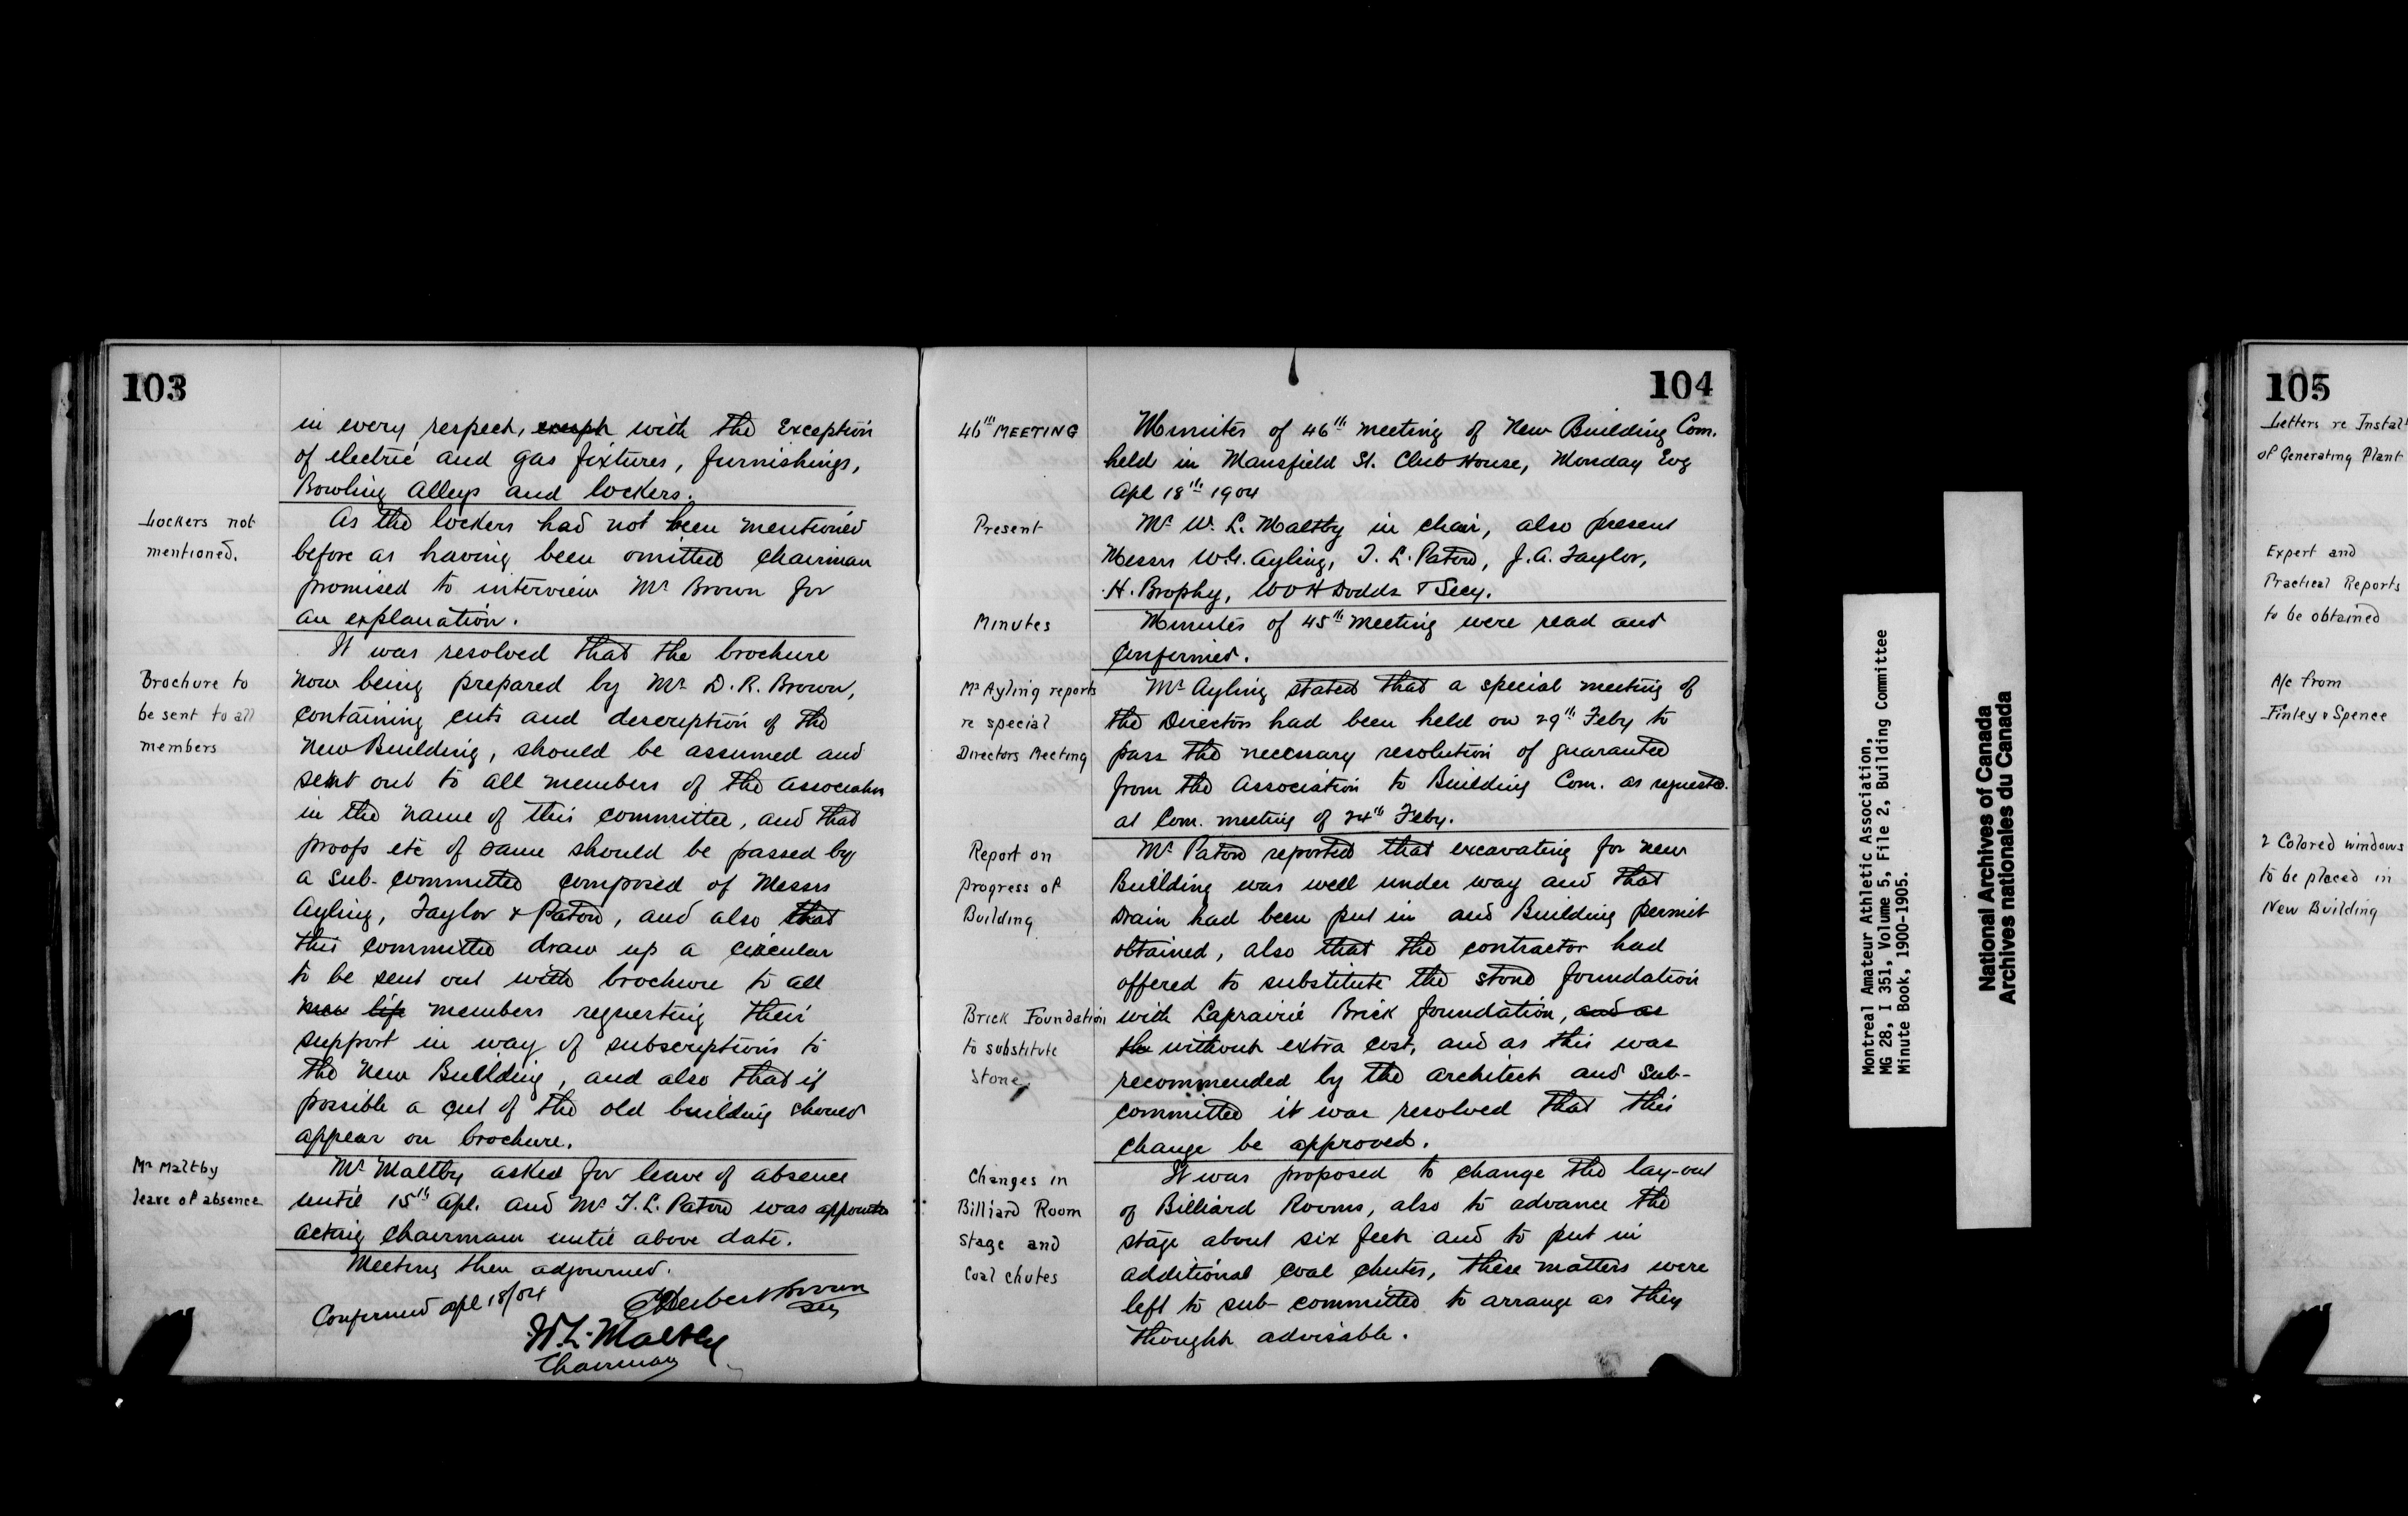 103
in every respect, except with the Exception
of electric and gas fixtures, furnishings,
Bowling Alleys and lockers.
Lockers not
mentioned.
As the lockers had not been mentioned
before as having been omitted Chairman
promised to interview Mr Brown for
an explanation.
It was resolved that the brochure
Brochure to
be sent to all
members
now being prepared by Mr D. R. Brown,
containing cuts and description of the
New Building, should be assumed and
sent out to all members of the Association
in the name of this committee, and that
proofs etc of same should be passed by
a sub-committee composed of Messrs
Ayling, Taylor & Paton, and also that
this committee draw up a circular
to be sent out with brochure to all
new life members requesting their
support in way of subscriptions to
the New Building, and also that if
possible a cut of the old building should
appear on brochure.
Mr Maltby
leave of absence
Mr Maltby asked for leave of absence
until 15th Apl. and Mr T. L. Paton was appointed
acting Chairman until above date.
Meeting then adjourned.
Confirmed Apl 18/04
Herbert Brown
Secy
W. L. Maltby
Chairman
104
46th MEETING
Minutes of 46th meeting of New Building Com.
held in Mansfield St. Club House, Monday Evg
Apl 18th 1904
Present
Mr W. L. Maltby in chair, also present
Messrs W. G. Ayling, T. L. Paton, J. A. Taylor,
H. Brophy, W O H Dodds & Secy.
Minutes
Minutes of 45th meeting were read and
Confirmed.
Mr Ayling reports
re special
Directors Meeting
Mr Ayling stated that a special meeting of
the Directors had been held on 29th Feby to
pass the necessary resolution of guarantee
from the Association to Building Com. as requested
at Com. meeting of 24th Feby.
Report on
progress of
Building
Mr Paton reported that excavating for new
Building was well under way and that
Drain had been put in and Building permit
obtained, also that the contractor had
offered to substitute the stone foundation
Brick Foundation
to substitute
stone.
with Laprairie Brick foundation, and as
the without extra cost, and as this was
recommended by the architect and sub-
committee it was resolved that this
change be approved.
Changes in
Billiard Room
stage and
Coal chutes
It was proposed to change the lay-out
of Billiard Rooms, also to advance the
stage about six feet and to put in
additional coal chutes, these matters were
left to sub-committee to arrange as they
thought advisable.
Montreal Amateur Athletic Association,
MG 28, I 351, Volume 5, File 2, Building Committee
Minute Book, 1900-1905.
National Archives of Canada
Archives nationales du Canada
105
Letters re Instal
of Generating Plant
Expert and
Practical Reports
to be obtained
A/c from
Finley & Spence
2 Colored windows
to be placed in
New Building